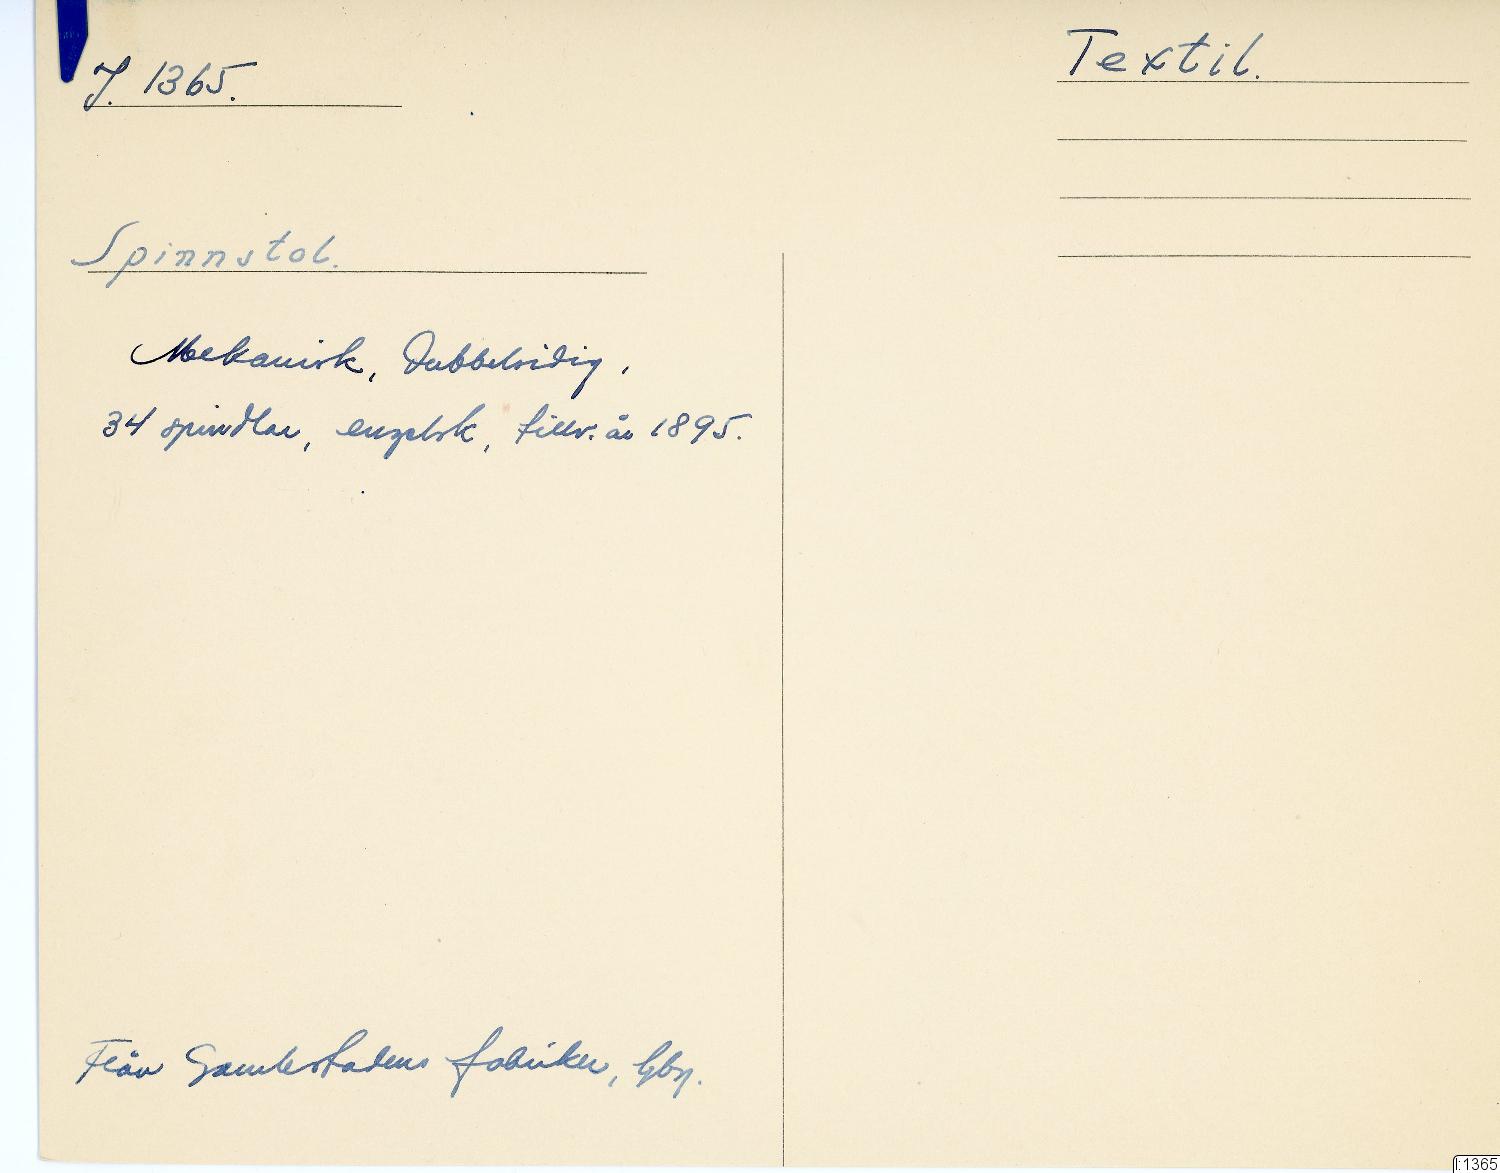 J. 1365.
Textil.
Spinnstol.
Mekanisk, Dubbelsidig,
34 spindlar, engelsk, tillv. år 1895.
Från Gamlestadens fabriker, Gbg.
I:1365